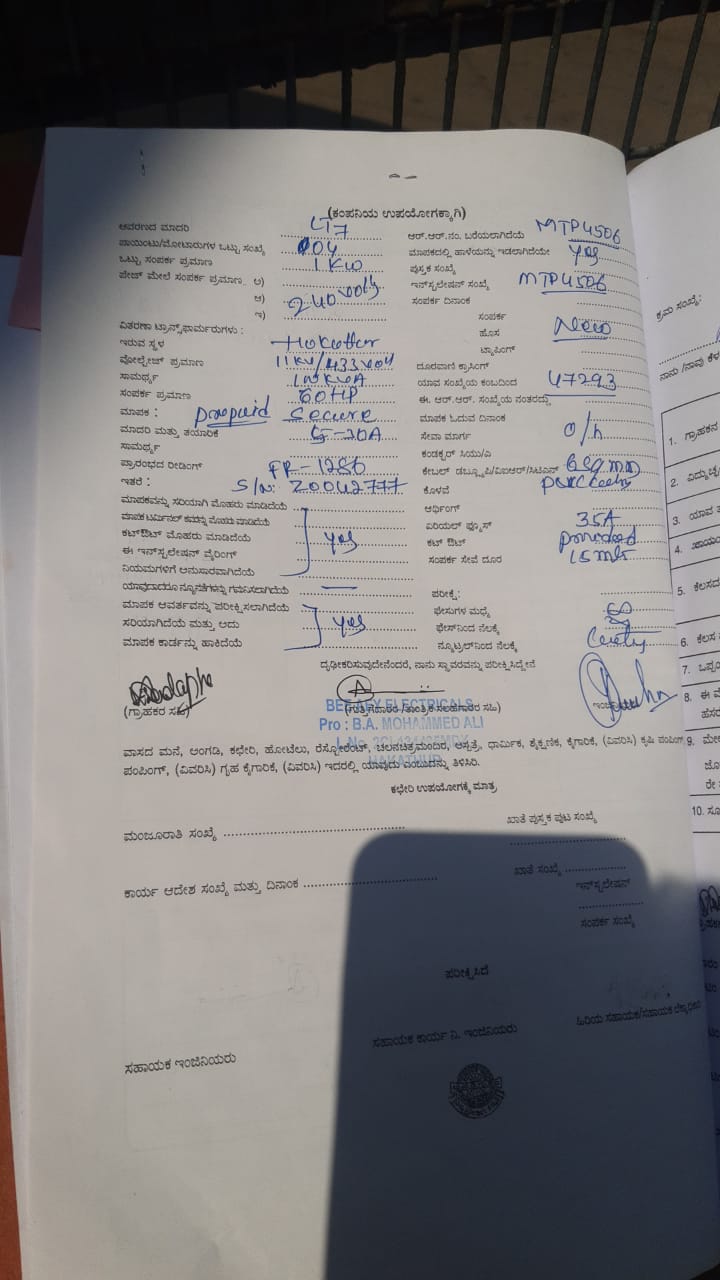 (ಕಂಪನಿಯ ಉಪಯೋಗಕ್ಕಾಗಿ)
ಆವರಣದ ಮಾದರಿ LT7
ಆರ್.ಆರ್.ನಂ. ಬರೆಯಲಾಗಿದೆಯೆ MTP4506
ಪಾಯಿಂಟು/ಮೋಟಾರುಗಳ ಒಟ್ಟು ಸಂಖ್ಯೆ 04
ಮಾಪಕದಲ್ಲಿ ಹಾಳೆಯನ್ನು ಇಡಲಾಗಿದೆಯೇ Yes
ಒಟ್ಟು ಸಂಪರ್ಕ ಪ್ರಮಾಣ 1 KW
ಪುಸ್ತಕ ಸಂಖ್ಯೆ
ಪೇಜ್ ಮೇಲೆ ಸಂಪರ್ಕ ಪ್ರಮಾಣ. ಅ)
ಇನ್‌ಸ್ಟಲೇಷನ್ ಸಂಖ್ಯೆ MTP4506
ಆ) 240 volts
ಸಂಪರ್ಕ ದಿನಾಂಕ
ಇ)
ಸಂಪರ್ಕ
ವಿತರಣಾ ಟ್ರಾನ್ಸ್‌ಫಾರ್ಮರುಗಳು :
ಹೊಸ New
ಇರುವ ಸ್ಥಳ
ಟ್ಯಾಪಿಂಗ್
ವೋಲ್ಟೇಜ್ ಪ್ರಮಾಣ 11KV/433 volt
ದೂರವಾಣಿ ಕ್ರಾಸಿಂಗ್
ಸಾಮರ್ಥ್ಯ
ಯಾವ ಸಂಖ್ಯೆಯ ಕಂಬದಿಂದ 47293
ಸಂಪರ್ಕ ಪ್ರಮಾಣ 60HP
ಈ. ಆರ್.ಆರ್. ಸಂಖ್ಯೆಯ ನಂತರದ್ದು
ಮಾಪಕ : prepaid Secure
ಮಾಪಕ ಓದುವ ದಿನಾಂಕ
ಮಾದರಿ ಮತ್ತು ತಯಾರಿಕೆ 5-30A
ಸೇವಾ ಮಾರ್ಗ o/h
ಸಾಮರ್ಥ್ಯ
ಕಂಡಕ್ಟರ್ ಸಿಯು/ಎ
ಪ್ರಾರಂಭದ ರೀಡಿಂಗ್ FR-1286
ಕೇಬಲ್ ಡಬ್ಲ್ಯೂಪಿ/ವಿಐಆರ್/ಸಿಟಿಎಸ್ 6 sq mm
ಇತರೆ : S/N: Z0042777
ಕೊಳವೆ
ಮಾಪಕವನ್ನು ಸರಿಯಾಗಿ ಮೊಹರು ಮಾಡಿದೆಯೆ
ಅರ್ಥಿಂಗ್
ಮಾಪಕ ಟರ್ಮಿನಲ್ ಕವರನ್ನು ಮೊಹರು ಮಾಡಿದೆಯೆ
ಏರಿಯಲ್ ಫ್ಯೂಸ್ 35A
ಕಟ್‌ಔಟ್ ಮೊಹರು ಮಾಡಿದೆಯೆ yes
ಕಟ್ ಔಟ್ provided
ಈ ಇನ್‌ಸ್ಟಲೇಷನ್ ವೈರಿಂಗ್
ಸಂಪರ್ಕ ಸೇವೆ ದೂರ 15 mts
ನಿಯಮಗಳಿಗೆ ಅನುಸಾರವಾಗಿದೆಯೆ
ಯಾವುದಾದರೂ ನ್ಯೂನತೆಗಳನ್ನು ಗಮನಿಸಲಾಗಿದೆಯೆ —
ಪರೀಕ್ಷೆ:
ಮಾಪಕ ಆವರ್ತವನ್ನು ಪರೀಕ್ಷಿಸಲಾಗಿದೆಯೆ
ಫೇಸುಗಳ ಮಧ್ಯೆ
ಸರಿಯಾಗಿದೆಯೆ ಮತ್ತು ಅದು yes
ಫೇಸ್‌ನಿಂದ ನೆಲಕ್ಕೆ
ಮಾಪಕ ಕಾರ್ಡನ್ನು ಹಾಕಿದೆಯೆ
ನ್ಯೂಟ್ರಲ್‌ನಿಂದ ನೆಲಕ್ಕೆ
ದೃಢೀಕರಿಸುವುದೇನೆಂದರೆ, ನಾನು ಸ್ಥಾವರವನ್ನು ಪರೀಕ್ಷಿಸಿದ್ದೇನೆ
(ಗ್ರಾಹಕರ ಸಹಿ)
(ಗುತ್ತಿಗೆದಾರರ /ತಾಂತ್ರಿಕ ಸಲಹೆಗಾರರ ಸಹಿ)
ELECTRICALS
Pro : B.A. MOHAMMED ALI
ವಾಸದ ಮನೆ, ಅಂಗಡಿ, ಕಛೇರಿ, ಹೋಟೆಲು, ರೆಸ್ಟೋರೆಂಟ್, ಚಲನಚಿತ್ರಮಂದಿರ, ಆಸ್ಪತ್ರೆ, ಧಾರ್ಮಿಕ, ಶೈಕ್ಷಣಿಕ, ಕೈಗಾರಿಕೆ, (ವಿವರಿಸಿ) ಕೃಷಿ ಪಂಪಿಂಗ್
ಪಂಪಿಂಗ್, (ವಿವರಿಸಿ) ಗೃಹ ಕೈಗಾರಿಕೆ, (ವಿವರಿಸಿ) ಇದರಲ್ಲಿ ಯಾವುದು ಎಂಬುದನ್ನು ತಿಳಿಸಿರಿ.
ಕಛೇರಿ ಉಪಯೋಗಕ್ಕೆ ಮಾತ್ರ
ಮಂಜೂರಾತಿ ಸಂಖ್ಯೆ
ಖಾತೆ ಪುಸ್ತಕ ಪುಟ ಸಂಖ್ಯೆ
ಕಾರ್ಯ ಆದೇಶ ಸಂಖ್ಯೆ ಮತ್ತು ದಿನಾಂಕ
ಖಾತೆ ಸಂಖ್ಯೆ
ಇನ್‌ಸ್ಟಲೇಷನ್
ಸಂಪರ್ಕ ಸಂಖ್ಯೆ
ಪರೀಕ್ಷಿಸಿದೆ
ಸಹಾಯಕ ಇಂಜಿನಿಯರು
ಸಹಾಯಕ ಕಾರ್ಯ ನಿ. ಇಂಜಿನಿಯರು
ಹಿರಿಯ ಸಹಾಯಕ/ಸಹಾಯಕ ಲೆಕ್ಕಾಧಿಕಾರಿ
ಕ್ರಮ ಸಂಖ್ಯೆ:
ನಾನು /ನಾವು ಕೆಳ
1. ಗ್ರಾಹಕನ
2. ವಿದ್ಯುಚ್ಛ
3. ಯಾವ ತ
4. ಖಾಯಂ
5. ಕೆಲಸದ
6. ಕೆಲಸ
7. ಒಪ್ಪಂ
8. ಈ ಮೆ
ಹೆಸರ
9. ಮೇಲ
10. ಸೂ